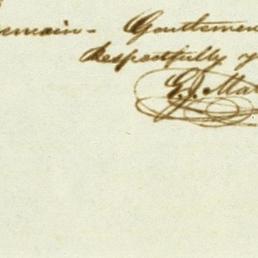 emain - Gentlemen
Respectfully y
G. J. Ma